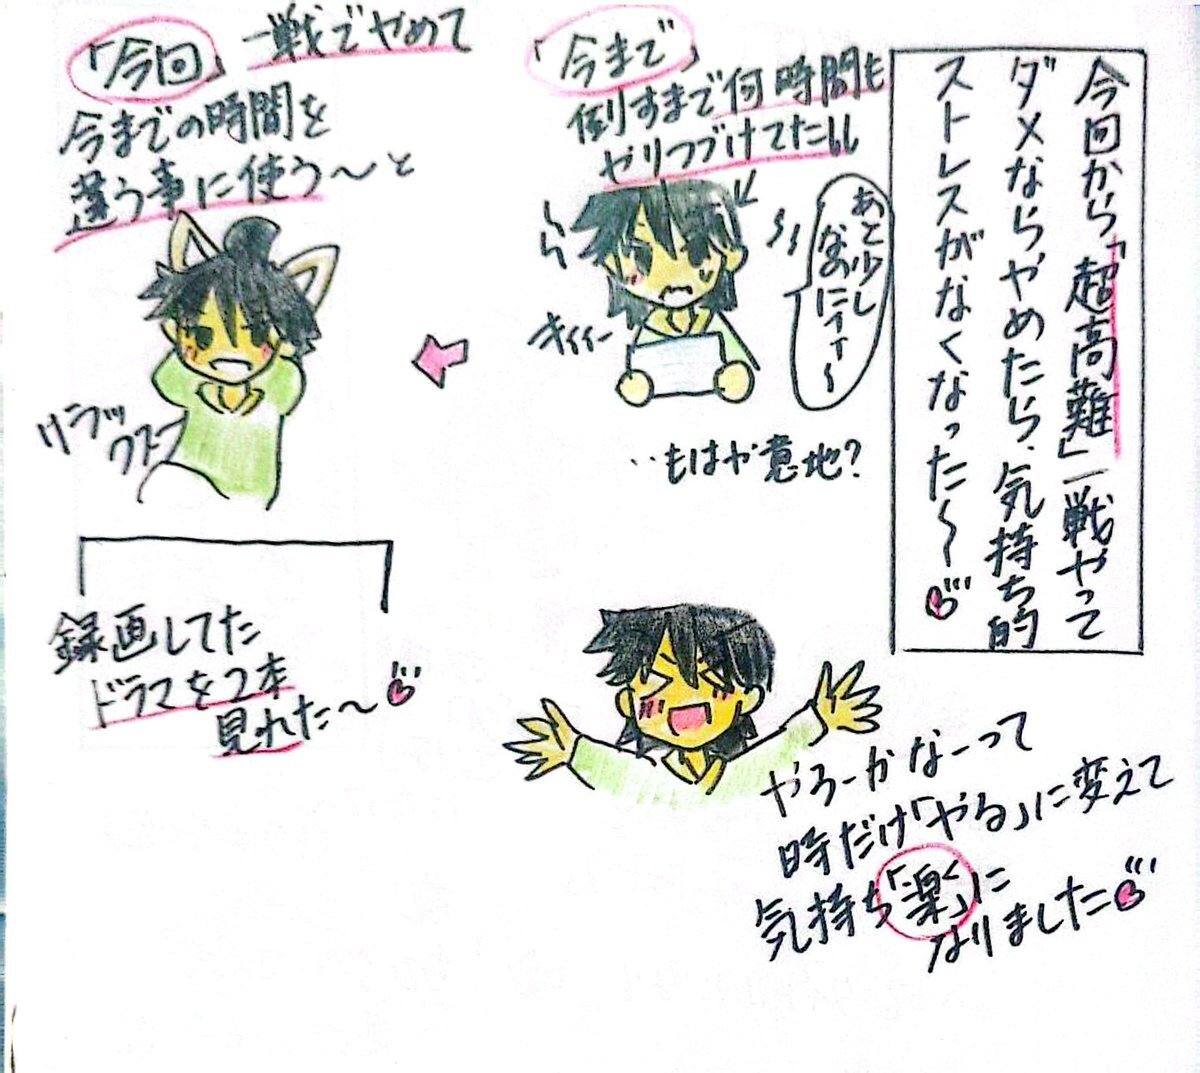 今回から「超高難」一戦やって
ダメならやめたら、気持ち的
ストレスがなくなった〜
「今まで」
倒すまで何時間も
やりつづけてた
あと少し
なのにィィ〜
キィィー
‥もはや意地?
「今回」一戦でやめて
今までの時間を
違う事に使う〜と
リラッ
クスー
録画してた
ドラマを2本
見れた〜
やろーかなーって
時だけ「やる」に変えて
気持ち「楽」に
なりました